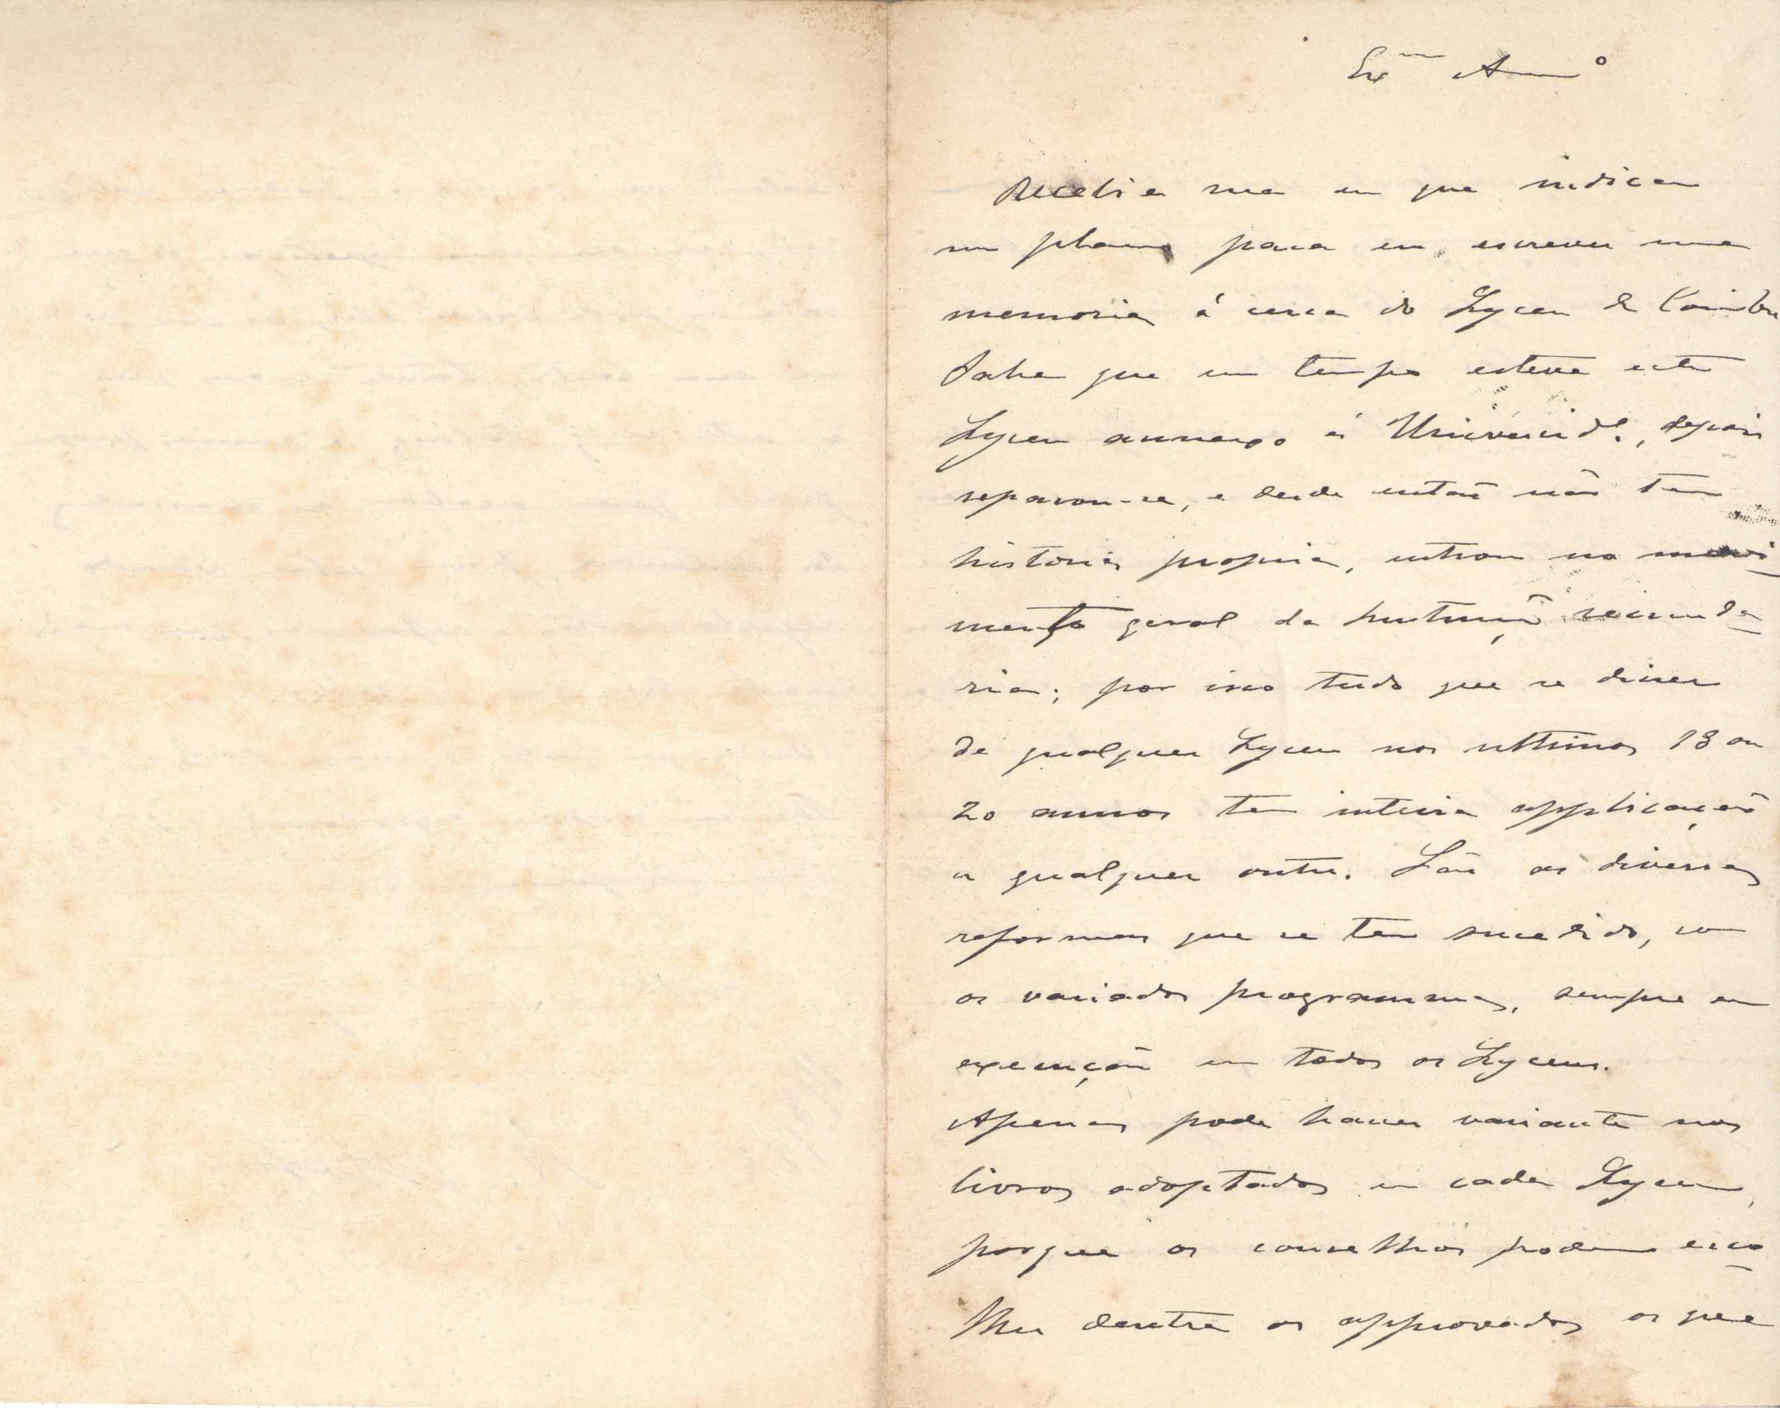 Ex.mo Am.o
Recebi a sua em que indica
um plano para eu escrever uma
memoria á cerca do Lyceu de Coimbra
Sabe que em tempo esteve este
Lyceu annexo á Universid.e, depois
separou-se, e desde então não tem
historia propria, entrou no movi
mento geral da instrucção secunda
ria; por isso tudo que se disser
de qualquer Lyceu nos ultimos 18 ou
20 annos tem inteira applicação
a qualquer outro. São as diversas
reformas que se tem sucedido, com
os variados programmas, sempre em
execução em todos os Lyceus.
Apenas pode haver variante nos
livros adoptados em cada Lyceu,
porque os conselhos podem esco
lher dentre os approvados os que